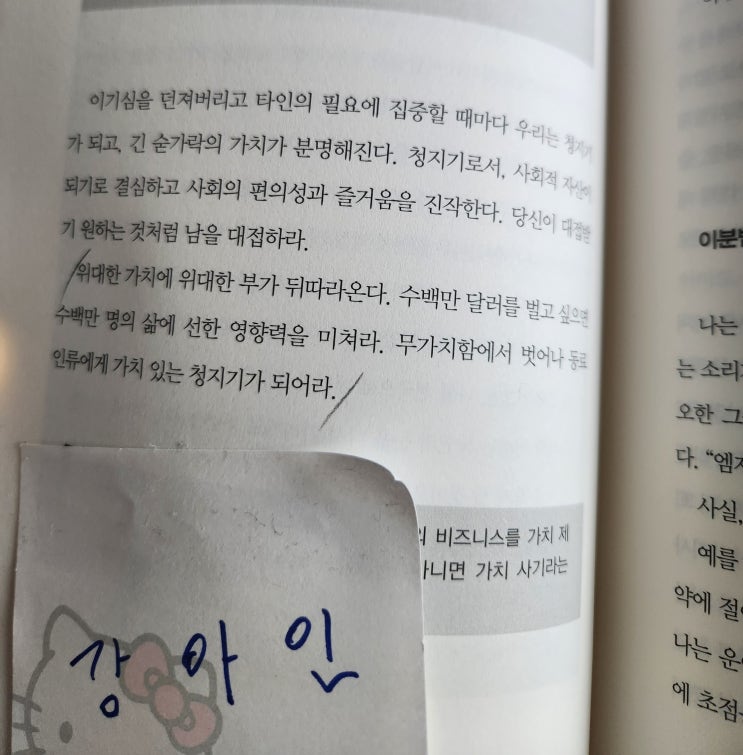 이기심을 던져버리고 타인의 필요에 집중할 때마다 우리는 청지기
가 되고, 긴 숟가락의 가치가 분명해진다. 청지기로서, 사회적 자산이
되기로 결심하고 사회의 편의성과 즐거움을 진작한다. 당신이 대접받
기 원하는 것처럼 남을 대접하라.
위대한 가치에 위대한 부가 뒤따라온다. 수백만 달러를 벌고 싶으면
수백만 명의 삶에 선한 영향력을 미쳐라. 무가치함에서 벗어나 동료
인류에게 가치 있는 청지기가 되어라.
비즈니스를 가치 제
아니면 가치 사기라는
강아인
나는
는 소리
오한 그
다. “엠
사실,
예를
약에
나는
에 초점